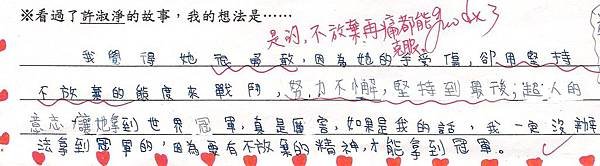 ※看過了許淑淨的故事，我的想法是……
是的，不放棄再痛都能克服。good x 3
我覺得她很勇敢，因為她的手受傷，卻用堅持
不放棄的態度來戰鬥，努力不懈，堅持到最後；超人的
意志讓她拿到世界冠軍，真是厲害，如果是我的話，我一定沒辦
法拿到冠軍的，因為要有不放棄的精神才能拿到冠軍。